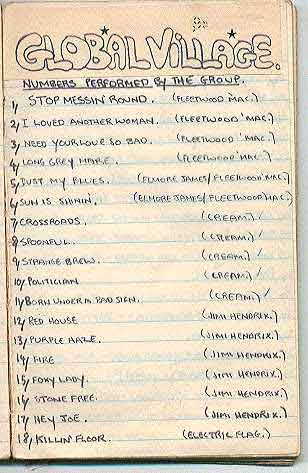 GLOBAL VILLAGE.
NUMBERS PERFORMED BY THE GROUP.
1/ STOP MESSIN' ROUND. (FLEETWOOD 'MAC.)
2/ I LOVED ANOTHER WOMAN. (FLEETWOOD 'MAC.)
3/ NEED YOUR LOVE SO BAD. (FLEETWOOD 'MAC.)
4/ LONG GREY MARE. (FLEETWOOD MAC.)
5/ DUST MY BLUES. (ELMORE JAMES/FLEETWOOD MAC)
6/ SUN IS SHININ. (ELMORE JAMES/FLEETWOOD MAC)
7/ CROSSROADS. (CREAM.) ✓
8/ SPOONFUL. (CREAM.) ✓
9/ STRANGE BREW. (CREAM.) ✓
10/ POLITICIAN. (CREAM.) ✓
11/ BORN UNDER A BAD SIGN. (CREAM.) ✓
12/ RED HOUSE (JIMI HENDRIX.)
13/ PURPLE HAZE. (JIMI HENDRIX.)
14/ FIRE (JIMI HENDRIX.)
15/ FOXY LADY. (JIMI HENDRIX.)
16/ STONE FREE. (JIMI HENDRIX.)
17/ HEY JOE. (JIMI HENDRIX.)
18/ KILLIN' FLOOR. (ELECTRIC FLAG.)